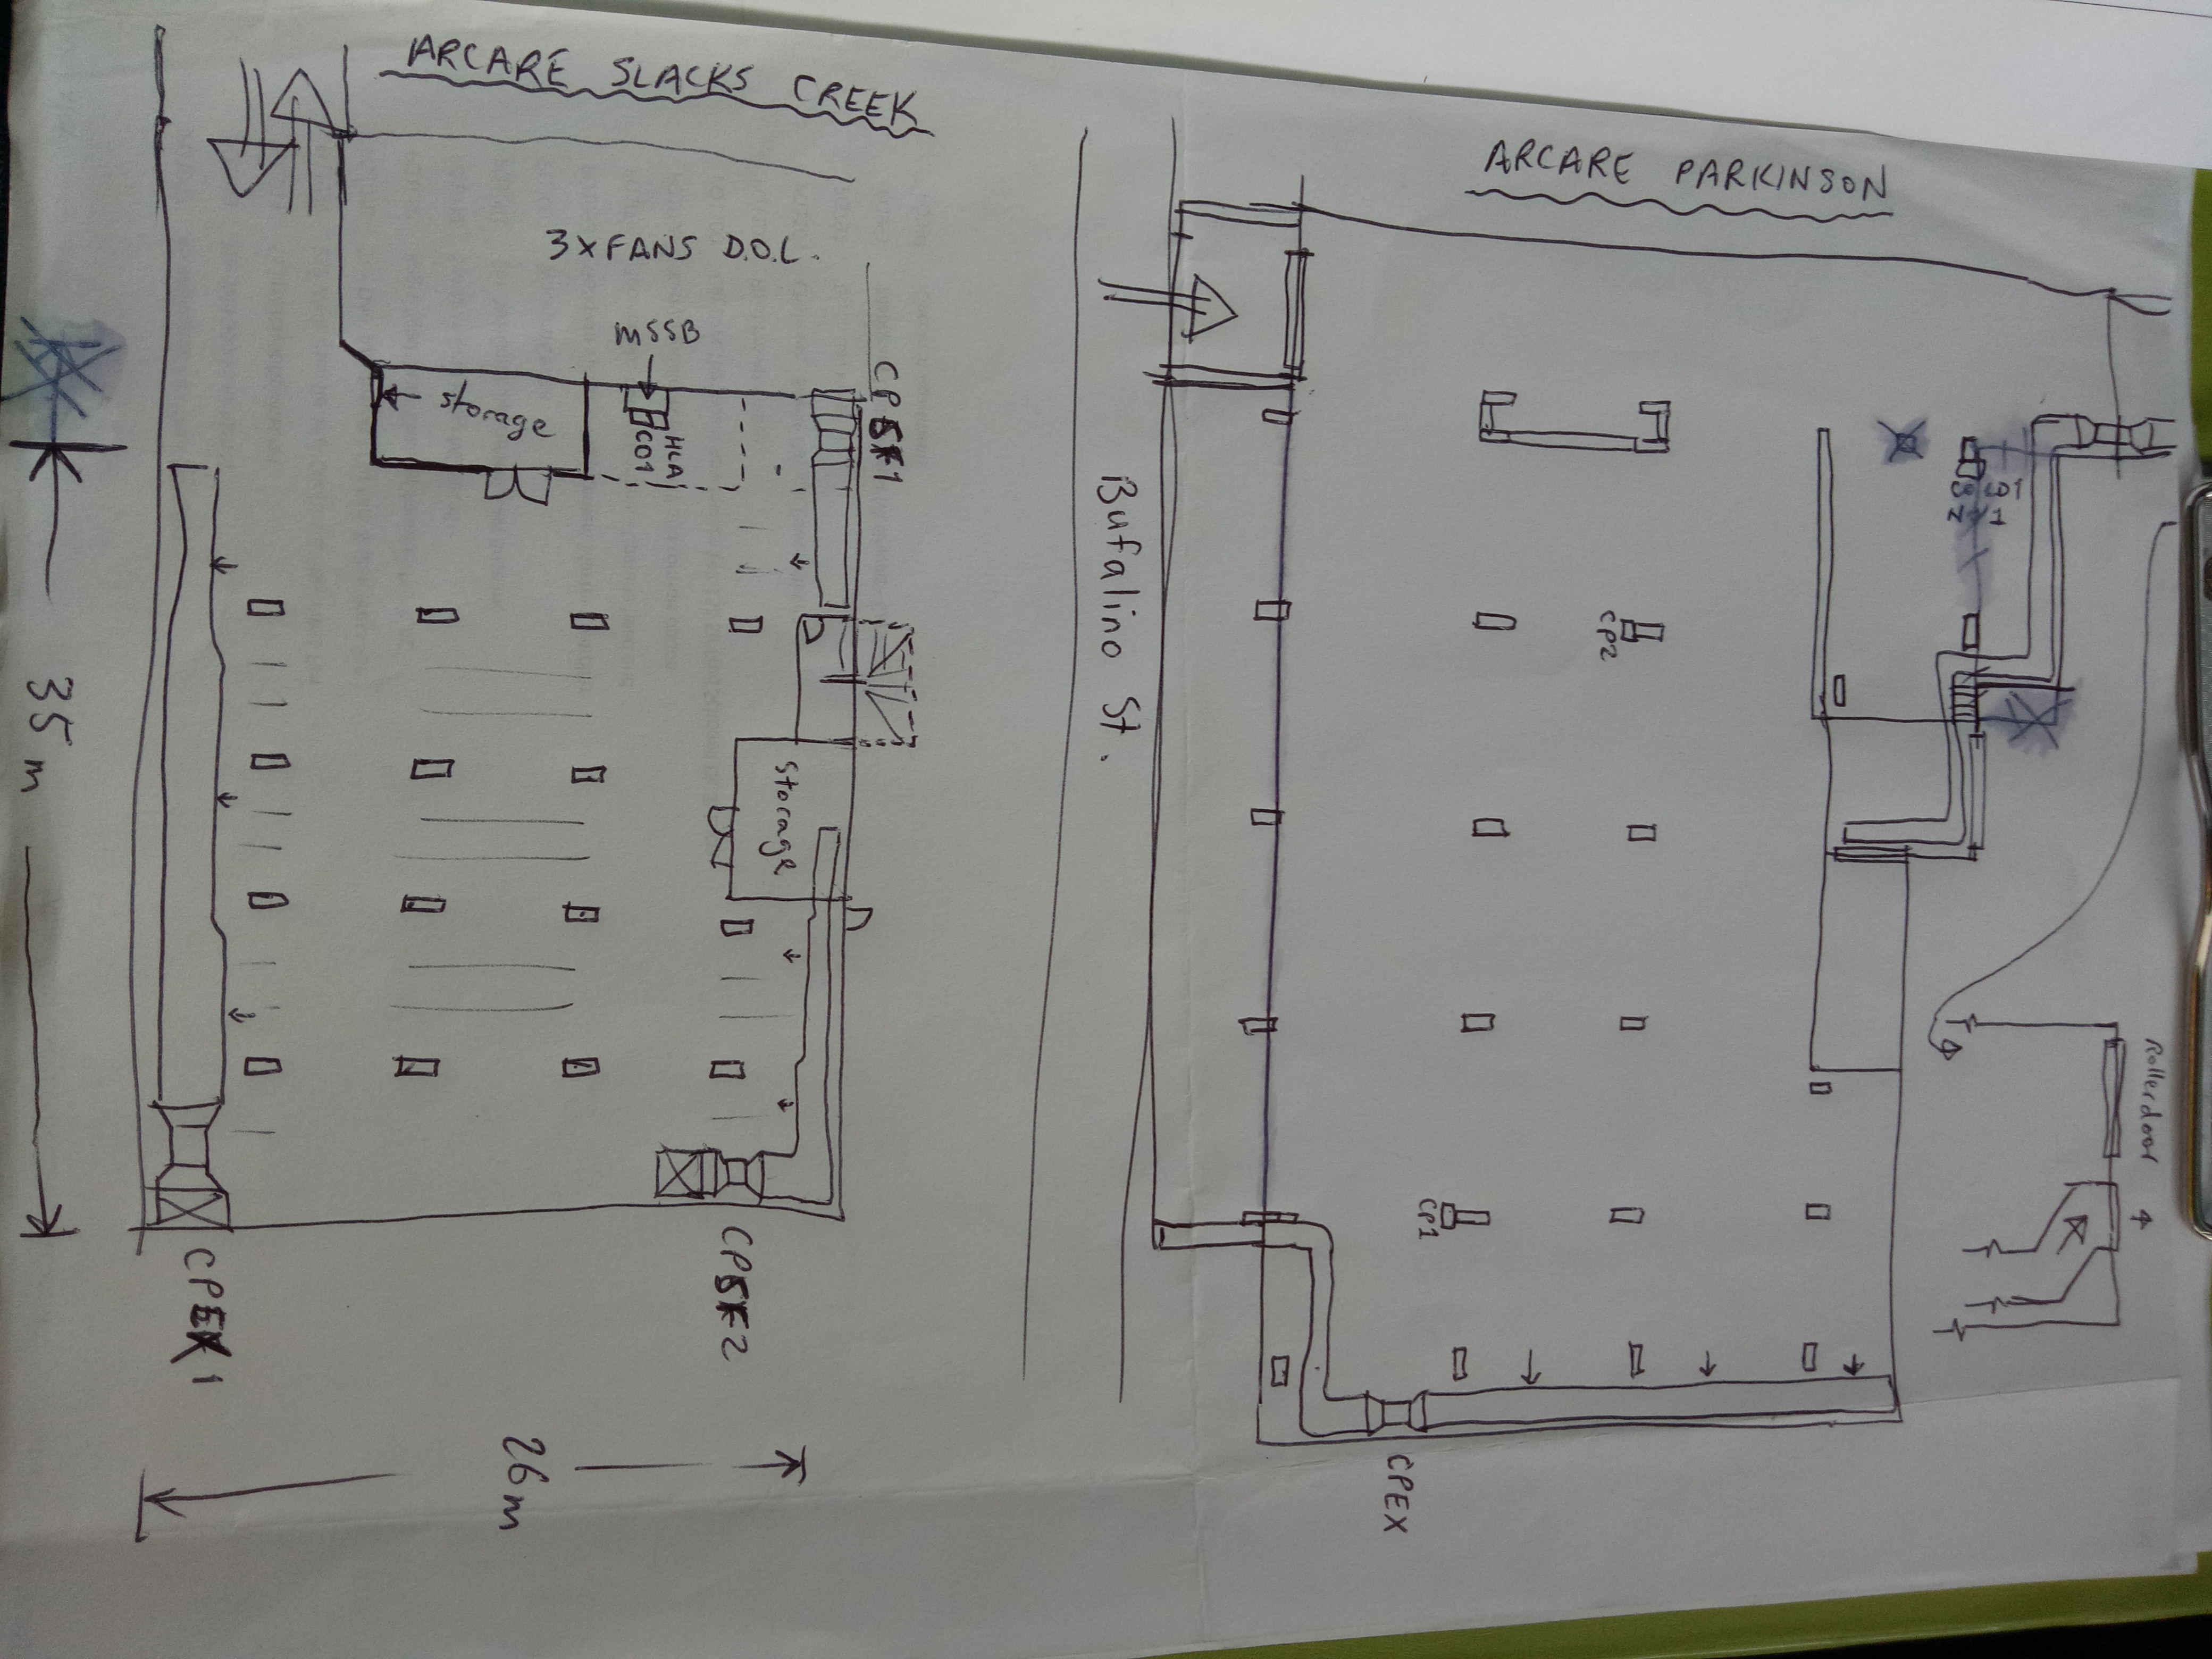 ARCARE SLACKS CREEK
3 x FANS D.O.L.
MSSB
storage
CO1
HLA
CPSF1
storage
35 m
CPEX 1
CPSF2
26m
ARCARE PARKINSON
Bufalino St.
CP2
CP1
CPEX
Rollerdoor